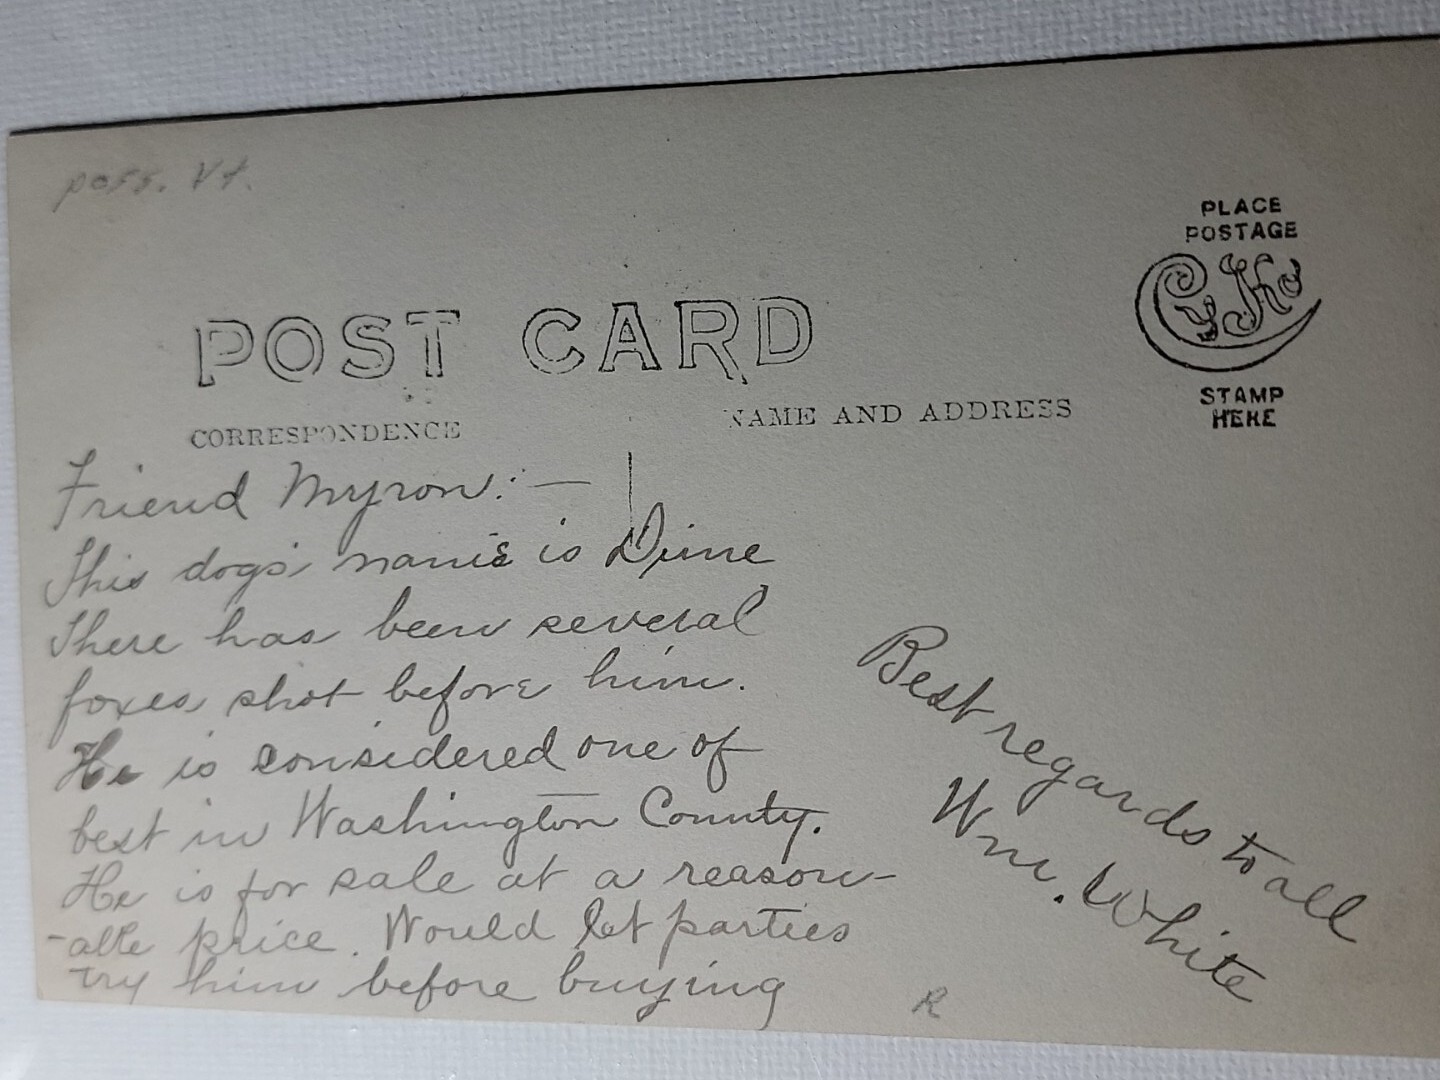 poss. Vt.
PLACE
POSTAGE
CYKO
STAMP
HERE
POST CARD
CORRESPONDENCE
NAME AND ADDRESS
Friend Myron:—
This dogs' name is Dime
There has been several
foxes shot before him.
He is considered one of
best in Washington County.
He is for sale at a reason-
-able price. Would let parties
try him before buying
Best regards to all
Wm. White
R